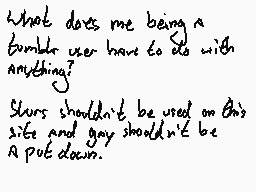 What does me being a
tumblr user have to do with
anything?
Slurs shouldn't be used on this
site and gay shouldn't be
a put down.